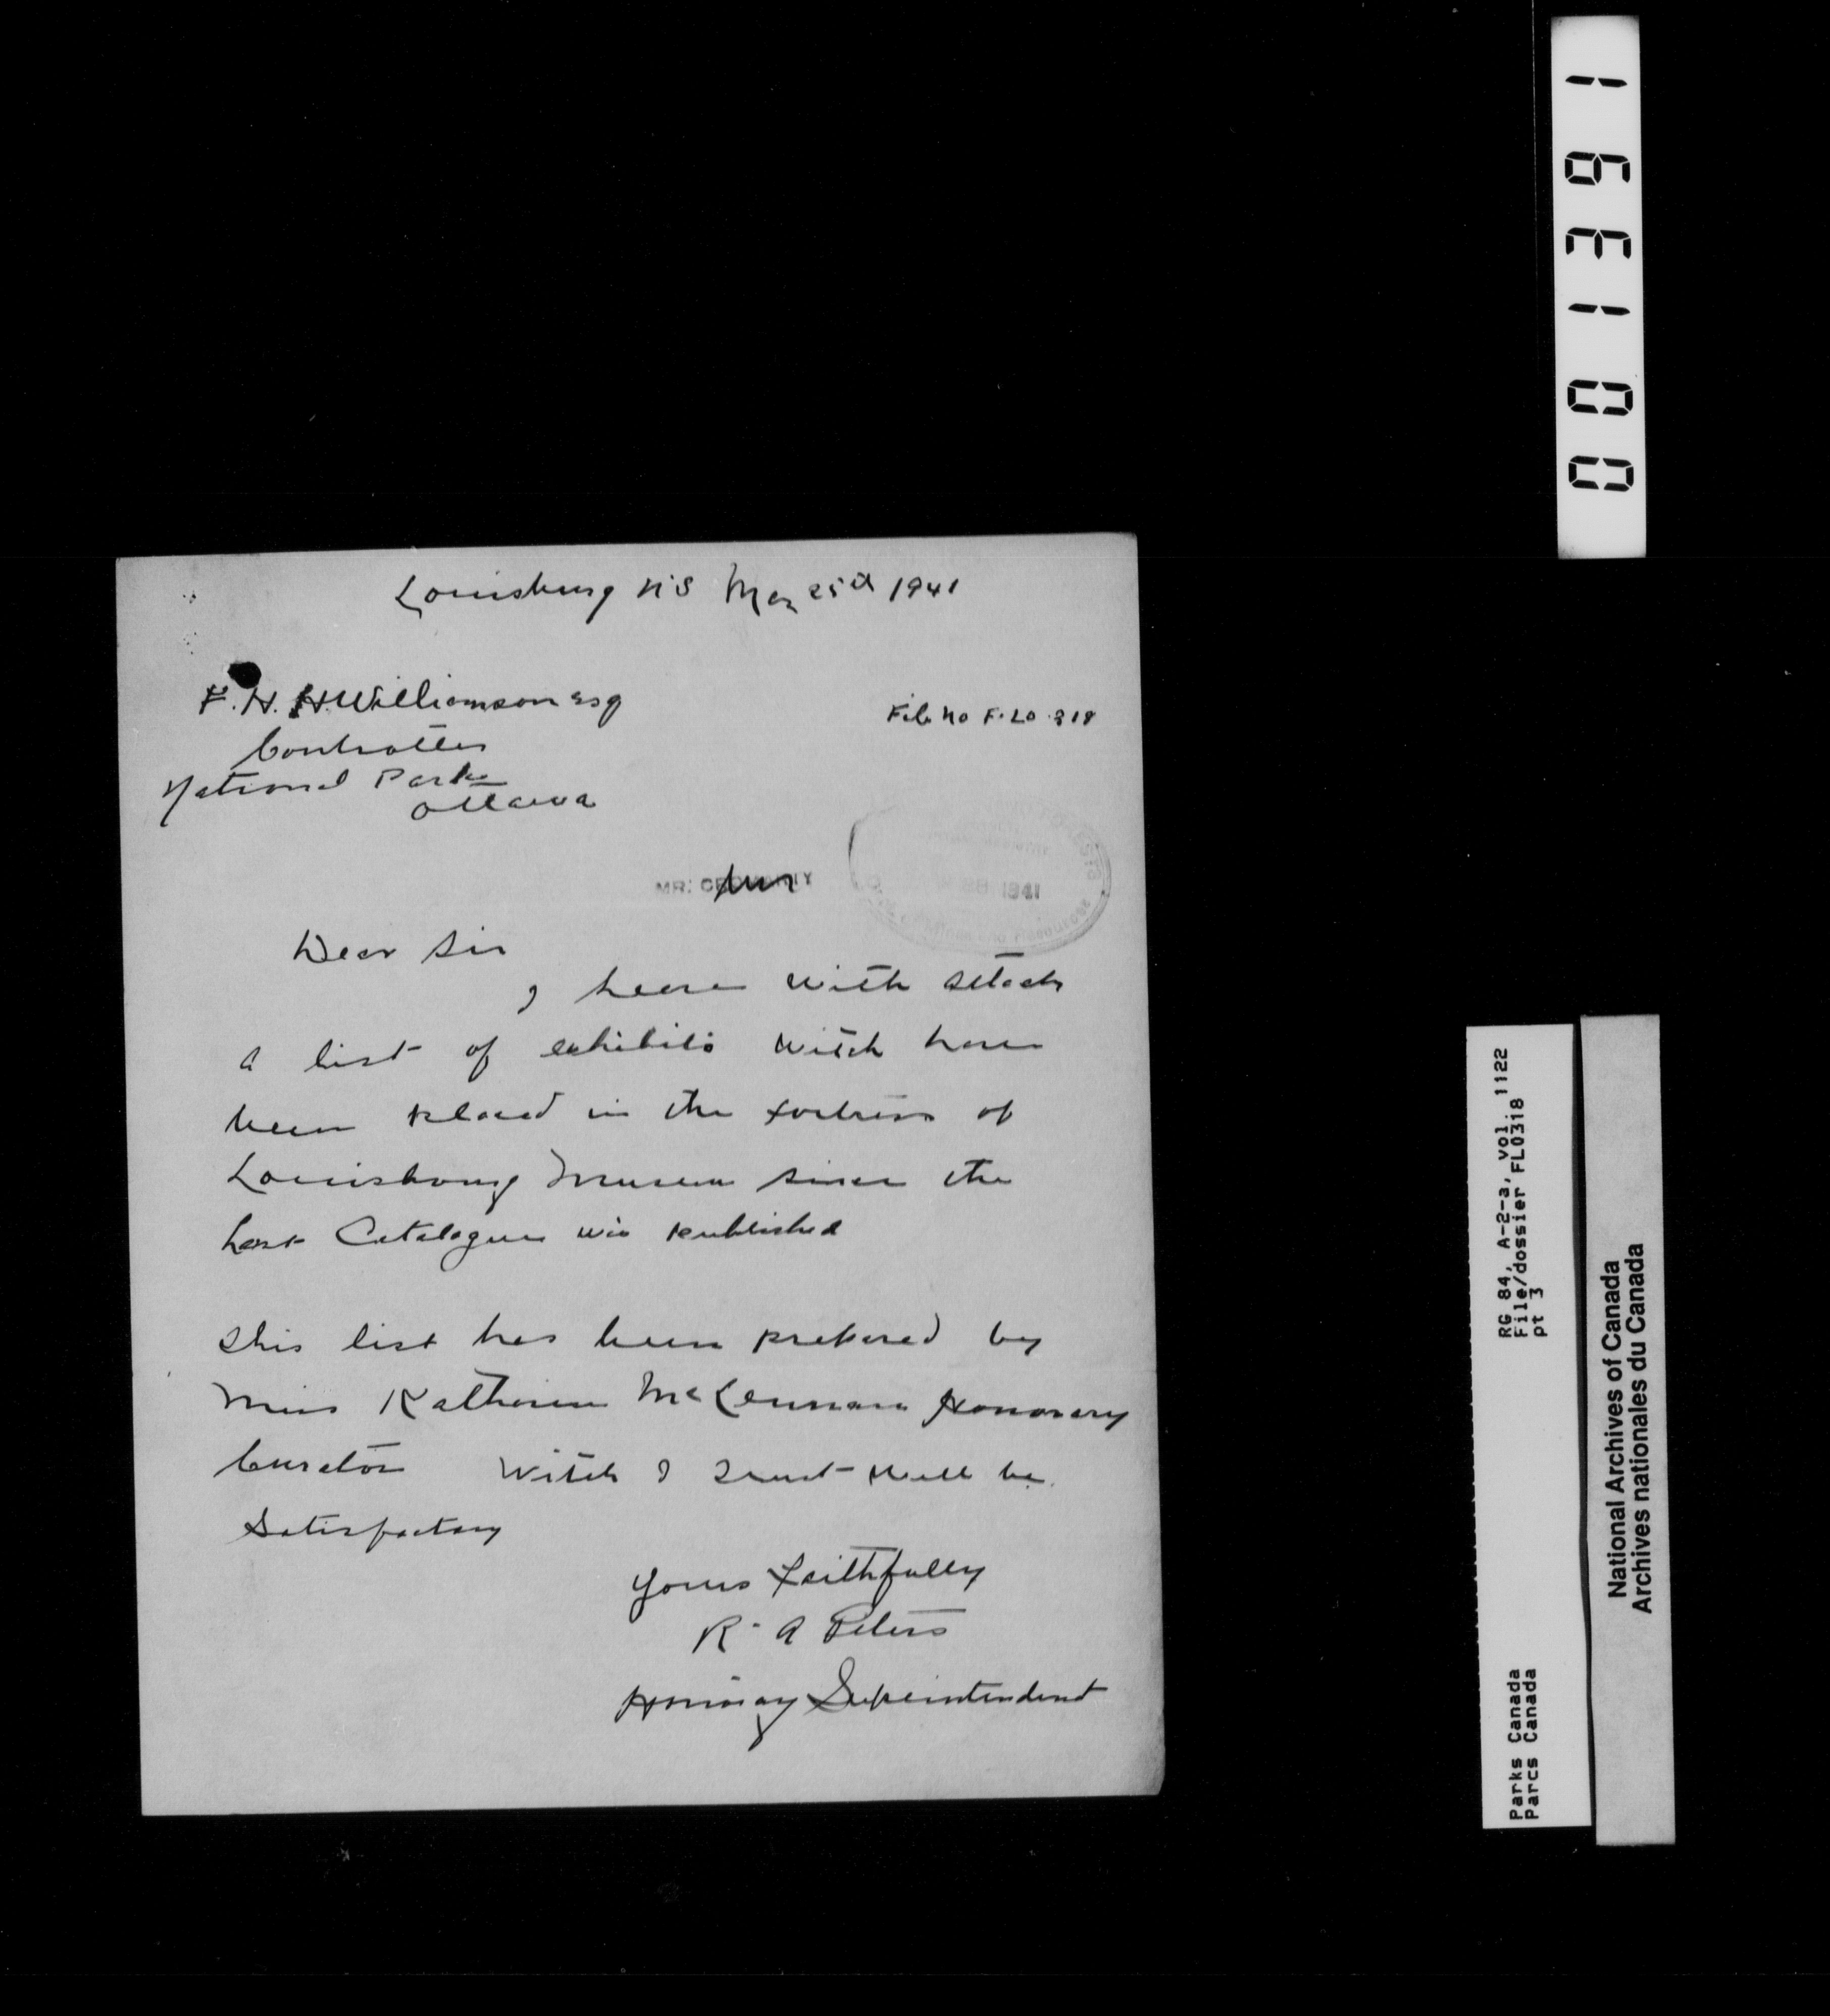 Louisburg N'S Mar 25th 1941
F. H. H. Williamson Esq
File No F. LO. 318
Controller
National Parks
Ottawa
MR.
1941
Mines and Resources
Dear Sir
I heare with attach
a list of exhibits witch have
been placed in the fortress of
Louisbourg Museum since the
last Catalogue was published
This list has been prepared by
Miss Katherine McLennan Honorary
Curator Witch I trust will be
Satisfactory
Yours faithfully
R. A Peters
Honoray Supeintendent
001361
RG 84, A-2-a, vol. 1122
File/dossier FLO318
pt 3
Parks Canada
Parcs Canada
National Archives of Canada
Archives nationales du Canada